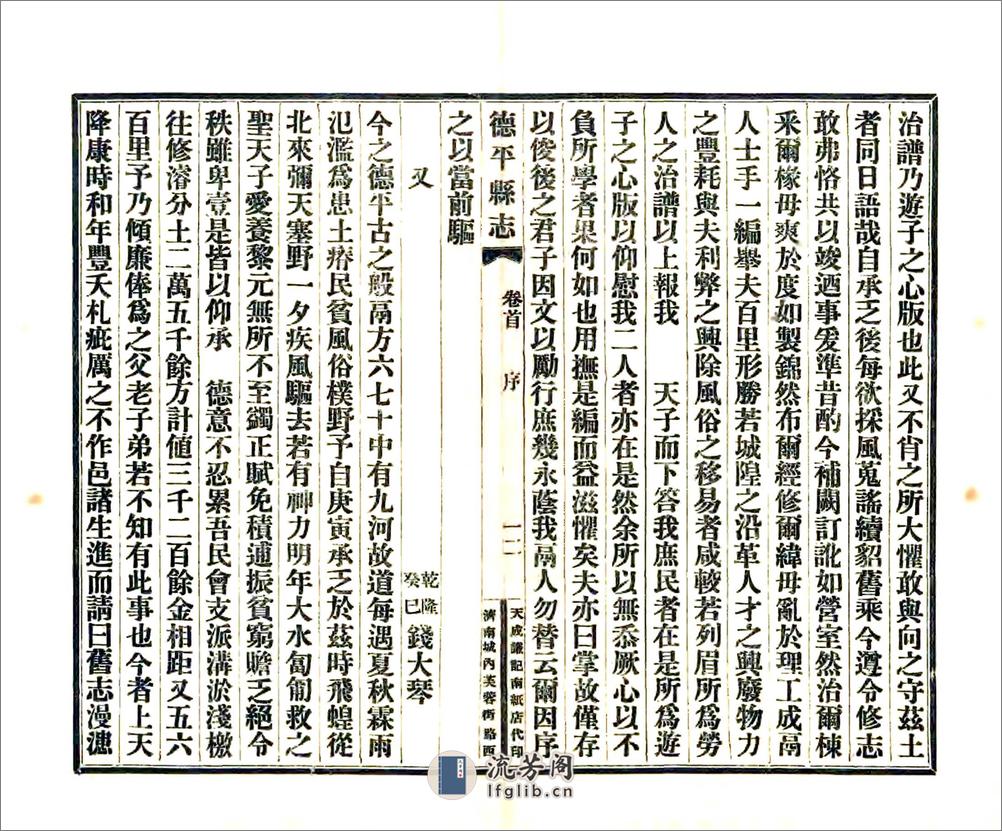 治譜乃遊子之心版也此又不肖之所大懼敢與向之守茲土
者同日語哉自承乏後每欲採風蒐謠續貂舊乘今遵令修志
敢弗恪共以竣迺事爰準昔酌今補闕訂訛如營室然治爾棟
釆爾椽毋爽於度如製錦然布爾經修爾緯毋亂於理工成鬲
人士手一編舉夫百里形勝若城隍之沿革人才之興廢物力
之豐耗與夫利弊之興除風俗之移易者咸較若列眉所爲勞
人之治譜以上報我　天子而下答我庶民者在是所爲遊
子之心版以仰慰我二人者亦在是然余所以無忝厥心以不
負所學者果何如也用撫是編而益滋懼矣夫亦曰掌故僅存
以俟後之君子因文以勵行庶幾永蔭我鬲人勿替云爾因序
德平縣志　卷首　序　一二　天成議記南紙店代印
濟南城內芙蓉街路西
之以當前驅
又　乾隆癸巳　錢大琴
今之德平古之般鬲方六七十中有九河故道每遇夏秋霖雨
氾濫爲患土瘠民貧風俗樸野予自庚寅承乏於茲時飛蝗從
北來彌天塞野一夕疾風驅去若有神力明年大水匍匐救之
聖天子愛養黎元無所不至蠲正賦免積逋振貧窮贍乏絕令
秩雖卑壹是皆以仰承　德意不忍累吾民會支派溝淤淺檄
往修濬分土二萬五千餘方計値三千二百餘金相距又五六
百里予乃傾廉俸爲之父老子弟若不知有此事也今者上天
降康時和年豐夭札疵厲之不作邑諸生進而請曰舊志漫漶
流芳阁
lfglib.cn